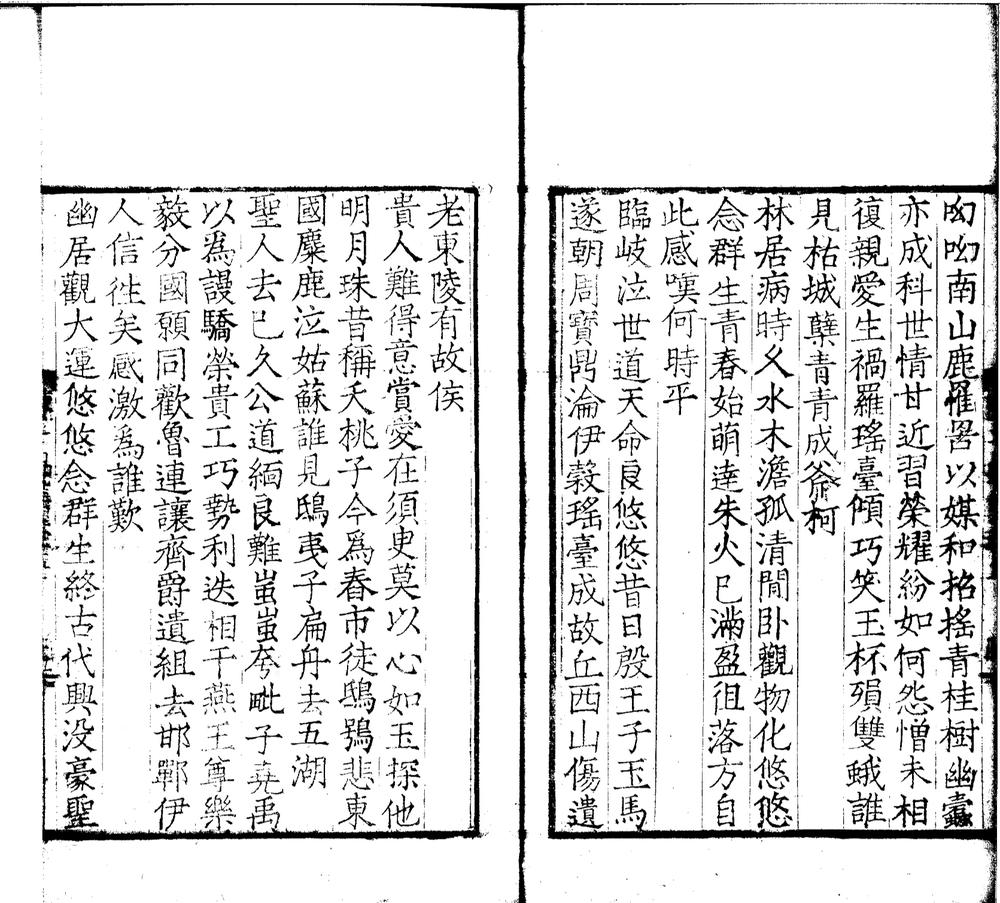 呦呦南山鹿罹罟以媒和招搖青桂樹幽蠹
亦成科世情甘近習榮耀紛如何怨憎未相
復親愛生禍羅瑤臺傾巧笑玉杯殞雙蛾誰
見枯城蘖青青成斧柯
林居病時久水木澹孤清閒臥觀物化悠悠
念群生青春始萌達朱火已滿盈徂落方自
此感嘆何時平
臨岐泣世道天命良悠悠昔日殷王子玉馬
遂朝周寶鼎淪伊穀瑤臺成故丘西山傷遺
老東陵有故侯
貴人難得意賞愛在須臾莫以心如玉探他
明月珠昔稱夭桃子今為舂市徒鴟鴞悲東
國麋鹿泣姑蘇誰見鴟夷子扁舟去五湖
聖人去已久公道緬良難蚩蚩夸毗子堯禹
以為謾驕榮貴工巧勢利迭相干燕王尊樂
毅分國願同歡魯連讓齊爵遺組去邯鄲伊
人信往矣感激為誰歎
幽居觀大運悠悠念群生終古代興没豪聖